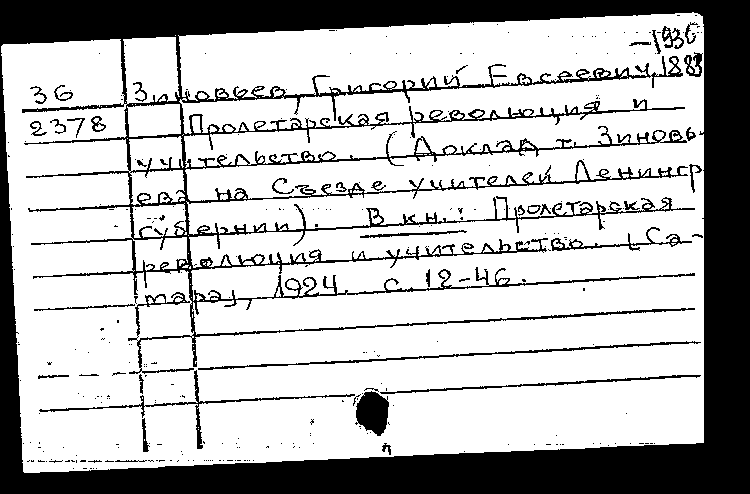 -1936
36 Зиновьев, Григорий Евсеевич, 1883
2378 Пролетарская революция и
учительство. (Доклад т. Зиновь-
ева на Съезде учителей Ленингр
губернии). В кн.: Пролетарская
революция и учительство. [Са-
мара], 1924. с. 12-46.